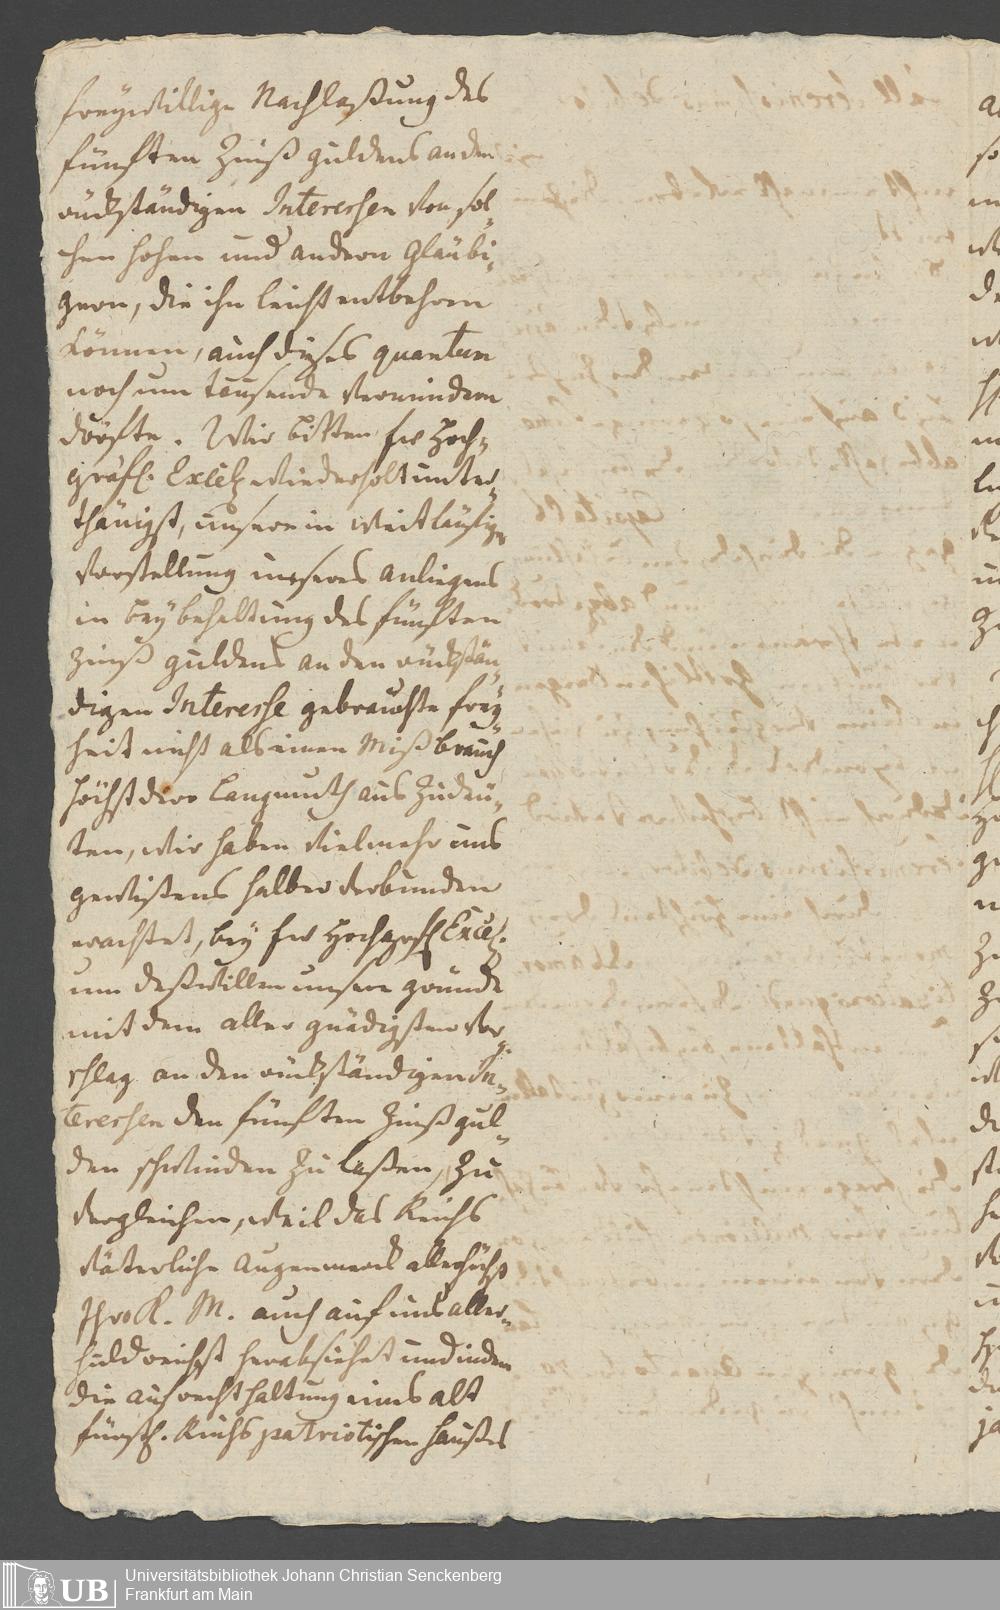 freywillige Nachlaßung des
fünften Zinß guldens an den
rückständigen Interessen von sol-
chen hohen und andern Gläubi-
gern, die ihn leicht entbehren
können, auch dieses quantum
noch um tausende vermindern
dörfte. Wir bitten Ew Hoch-
gräfl. Excell. wiederholt unter-
thänigst, unsere in weitläufige
Vorstellung unseres anliegens
in beybehaltung des fünften
Zinß guldens an den rückstän-
digen Interesse gebrauchte frey-
heit nicht als einen Mißbrauch
höchst dero Langmuth aus zudeu-
ten, wir haben vielmehr uns
gewißens halber verbunden
erachtet, bey Ew Hochgräfl Excel.
um deßwillen unsere gründe
mit dem aller gnädigsten Vor-
schlag an den rückständigen In-
teressen den fünften Zinß gul-
den schwinden zu laßen, zu
vergleichen, weil das Reichs
Väterliche Augenmerck allerhöchst
Ihro K. M. auch auf uns aller-
huldreichst herabsiehet und indem
die aufrechthaltung eines alt
fürstl. Reichs patriotischen Haußes
Universitätsbibliothek Johann Christian Senckenberg
Frankfurt am Main
UB